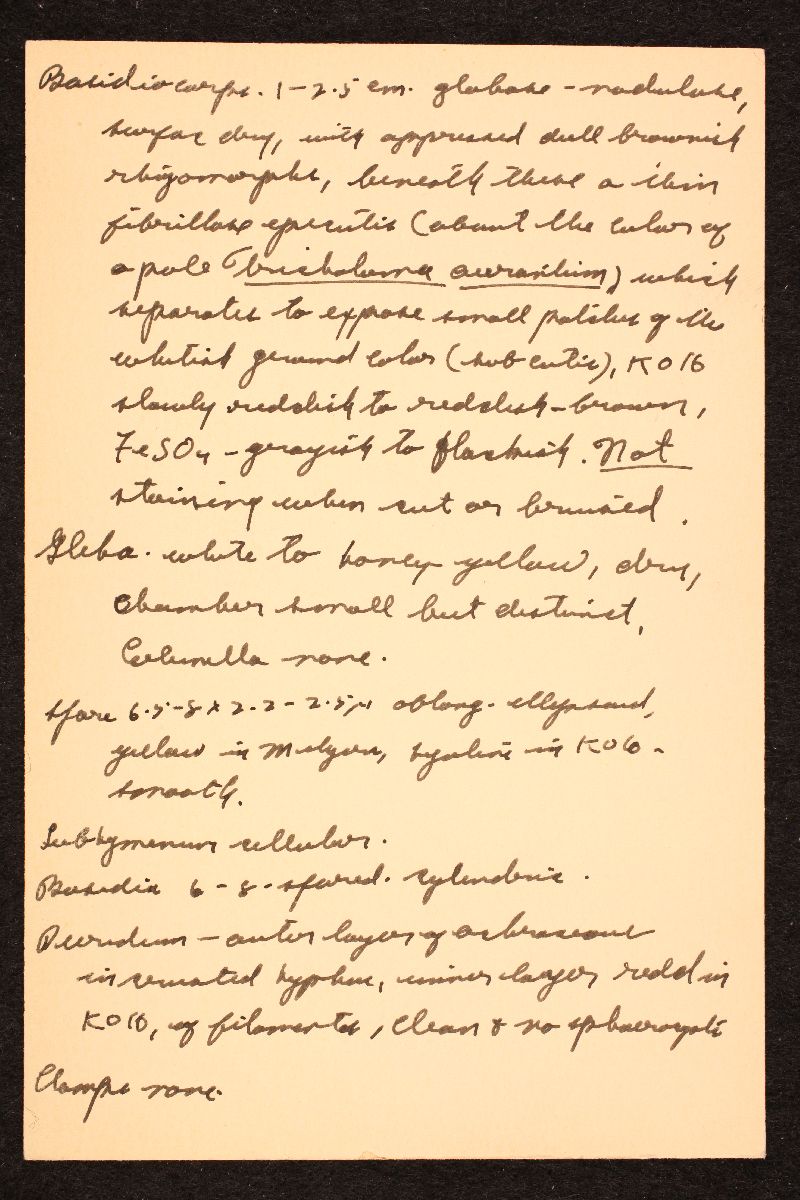 Basidiocarps. 1-2.5 cm. globose - nodulose,
surface dry, with appressed dull brownish
rhizomorphs, beneath these a thin
fibrillose epicutis (about the color of
a pale Tricholoma aurantium) which
separates to expose small patches of the
whitish ground color (subcutis), KOH
slowly reddish to reddish-brown,
FeSO4 - grayish to flashish. Not
staining when cut or bruised.
Gleba. white to honey yellow, dry,
chamber small but distinct,
Columella none.
Spore 6.5-8 x 2.2-2.5 µ oblong-ellipsoid,
yellow in Melzer, hyaline in KOH -
smooth.
Subhymenium cellular.
Basidia 6-8-spored. cylindric.
Peridium - outer layer of ochraceous
incrusted hyphae, inner layer redd in
KOH, of filaments, clean & no sphaerocysts
Clamps none.